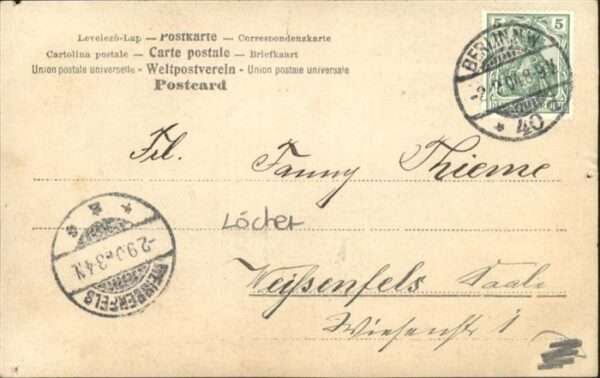 Levelező-Lap — Postkarte — Correspondenzkarte
Cartolina postale — Carte postale — Briefkaart
Union postale universelle - Weltpostverein - Union postale universale
Postcard
5 5
BERLIN N.W.
* 40
Frl. Fanny Thieme
Löcher
WEISSENFELS
Weißenfels Saale
Wiesenstr 1